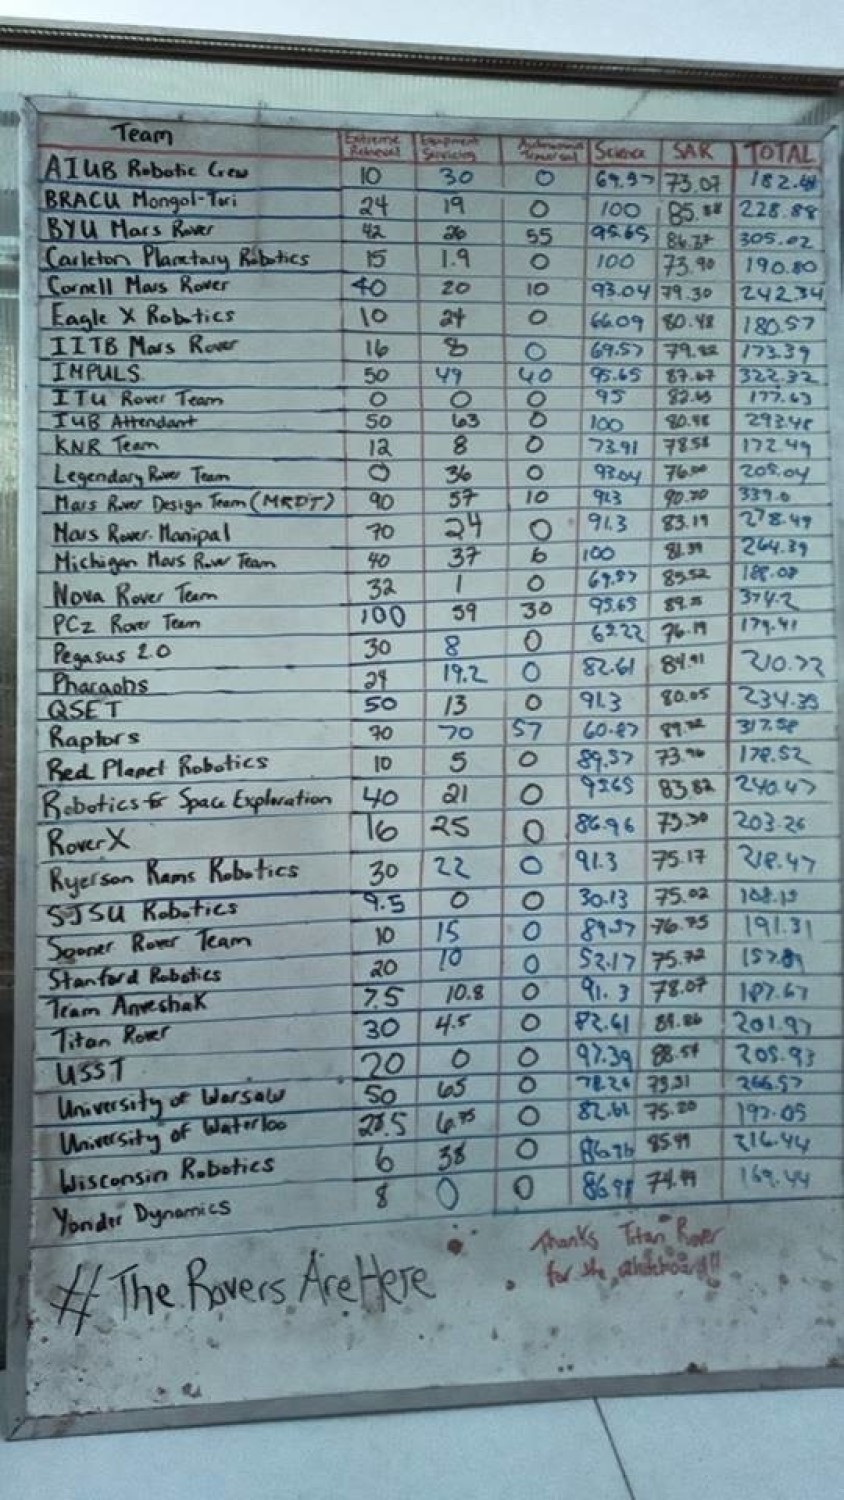 Team Extreme Retrieval Equipment Servicing Autonomous Traversal Science SAR TOTAL
AIUB Robotic Crew 10 30 0 69.57 73.07 182.
BRACU Mongol-Tori 24 19 0 100 85.88 228.88
BYU Mars Rover 42 26 55 95.65 86.37 305.02
Carleton Planetary Robotics 15 1.9 0 100 73.90 190.80
Cornell Mars Rover 40 20 10 93.04 79.30 242.34
Eagle X Robotics 10 24 0 66.09 80.48 180.57
IITB Mars Rover 16 8 0 69.57 79.82 173.39
IMPULS 50 49 40 95.65 87.67 322.32
ITU Rover Team 0 0 0 95 82.63 177.63
IUB Attendant 50 63 0 100 80.48 293.48
KNR Team 12 8 0 73.91 78.58 172.49
Legendary Rover Team 0 36 0 93.04 76.00 205.04
Mars Rover Design Team (MRDT) 90 57 10 91.3 90.70 339.0
Mars Rover Manipal 70 24 0 91.3 83.19 278.49
Michigan Mars Rover Team 40 37 6 100 81.39 264.39
Nova Rover Team 32 1 0 69.57 85.52 188.08
PCz Rover Team 100 59 30 95.65 374.2
Pegasus 2.0 30 8 0 65.22 76.19 179.41
Pharaohs 24 19.2 0 82.61 84.91 210.72
QSET 50 13 0 91.3 80.05 234.35
Raptors 70 57 60.87 317.58
Red Planet Robotics 10 5 0 89.57 73.96 178.52
Robotics for Space Exploration 40 21 0 95.65 83.82 240.47
RoverX 16 25 0 86.96 75.30 203.26
Ryerson Rams Robotics 30 22 0 91.3 75.17 218.47
SJSU Robotics 9.5 0 0 30.13 75.02
Sooner Rover Team 10 15 0 89.57 76.75 191.31
Stanford Robotics 20 10 0 52.17 75.72 157.89
Team Anveshak 7.5 10.8 0 91.3 78.07 187.67
Titan Rover 30 4.5 0 82.61 84.86 201.97
USST 20 0 0 97.39 88.54 205.93
University of Warsaw 50 65 0 78.26 73.31 266.57
University of Waterloo 28.5 6.75 0 82.61 75.20 197.05
Wisconsin Robotics 6 38 0 86.96 85.49 216.44
Yonder Dynamics 8 0 0 74.49 169.44
Thanks Titan Rover
for the whiteboard!!
#The Rovers Are Here